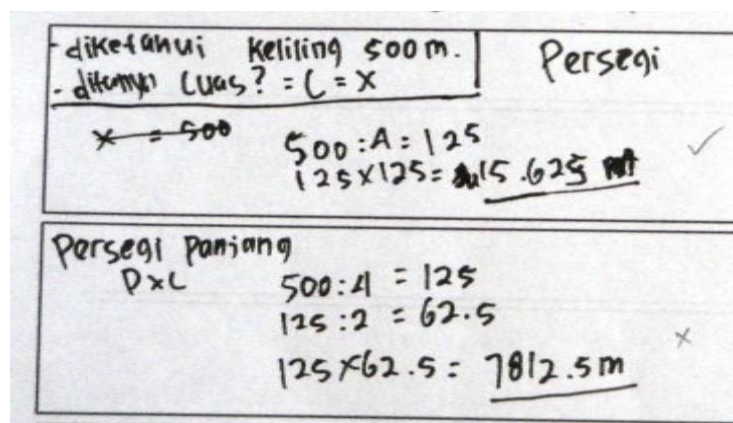 - diketahui keliling 500 m.
Persegi
- ditanya Luas? = L = X
x = 500
500 : 4 = 125
125 x 125 = 15.625
Persegi Panjang
P x L
500 : 4 = 125
125 : 2 = 62.5
125 x 62.5 = 7812.5 m